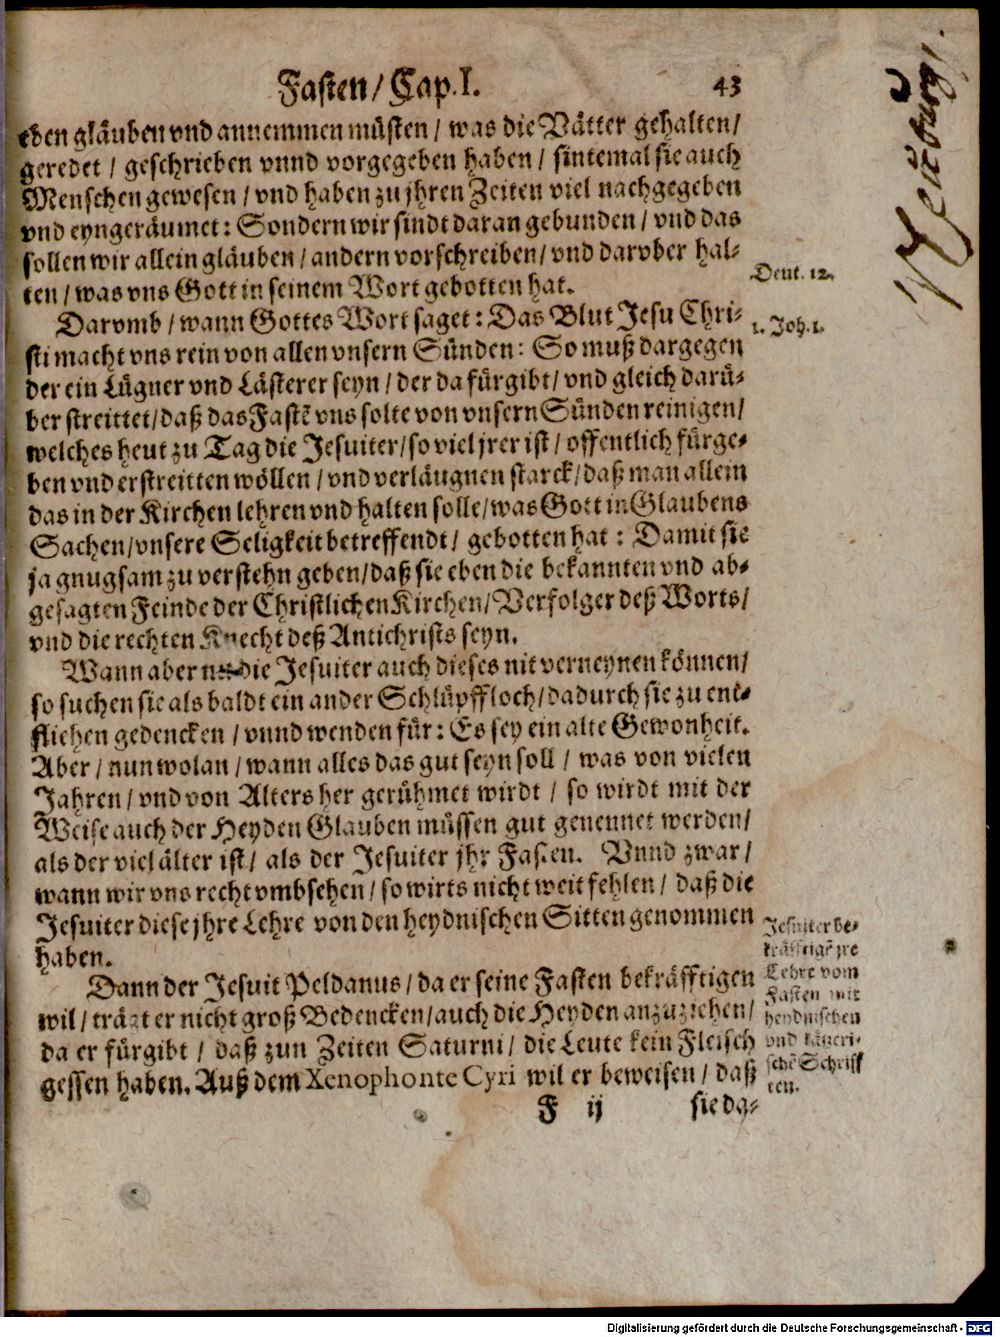 Fasten/ Cap. I. 43
eben gläuben vnd annemmen müsten / was die Vätter gehalten/
geredet / geschrieben vnnd vorgegeben haben / sintemal sie auch
Menschen gewesen / vnd haben zu jhren Zeiten viel nachgegeben
vnd eyngeräumet: Sondern wir sindt daran gebunden / vnd das
sollen wir allein gläuben / andern vorschreiben / vnd darvber hal-
ten / was vns Gott in seinem Wort gebotten hat.
Deut. 12.
Darvmb / wann Gottes Wort saget: Das Blut Jesu Chri-
1. Joh. 1.
sti macht vns rein von allen vnsern Sünden: So muß dargegen
der ein Lügner vnd Lästerer seyn / der da fürgibt / vnd gleich darü-
ber streittet / daß das Fastē vns solte von vnsern Sünden reinigen/
welches heut zu Tag die Jesuiter / so viel jrer ist / offentlich fürge-
ben vnd erstreitten wöllen / vnd verläugnen starck / daß man allein
das in der Kirchen lehren vnd halten solle / was Gott in Glaubens
Sachen / vnsere Seligkeit betreffendt / gebotten hat: Damit sie
ja gnugsam zu verstehn geben / daß sie eben die bekannten vnd ab-
gesagten Feinde der Christlichen Kirchen / Verfolger deß Worts/
vnd die rechten Knecht deß Antichrists seyn.
Wann aber die Jesuiter auch dieses nit verneynen können/
so suchen sie als baldt ein ander Schlüpffloch / dadurch sie zu ent-
fliehen gedencken / vnnd wenden für: Es sey ein alte Gewonheit.
Aber / nun wolan / wann alles das gut seyn soll / was von vielen
Jahren / vnd von Alters her gerühmet wirdt / so wirdt mit der
Weise auch der Heyden Glauben müssen gut genennet werden/
als der viel älter ist / als der Jesuiter jhr Fasten. Vnnd zwar/
wann wir vns recht vmbsehen / so wirts nicht weit fehlen / daß die
Jesuiter diese jhre Lehre von den heydnischen Sitten genommen
haben.
Jesuiter be-
kräfftigē jre
Lehre vom
Fasten mit
heydnischen
vnd
schē Schriff
ten.
Dann der Jesuit Peldanus / da er seine Fasten bekräfftigen
wil / trägt er nicht groß Bedencken / auch die Heyden anzuziehen/
da er fürgibt / daß zun Zeiten Saturni / die Leute kein Fleisch
gessen haben. Auß dem Xenophonte Cyri wil er beweisen / daß
F ij sie da-
Digitalisierung gefördert durch die Deutsche Forschungsgemeinschaft - DFG